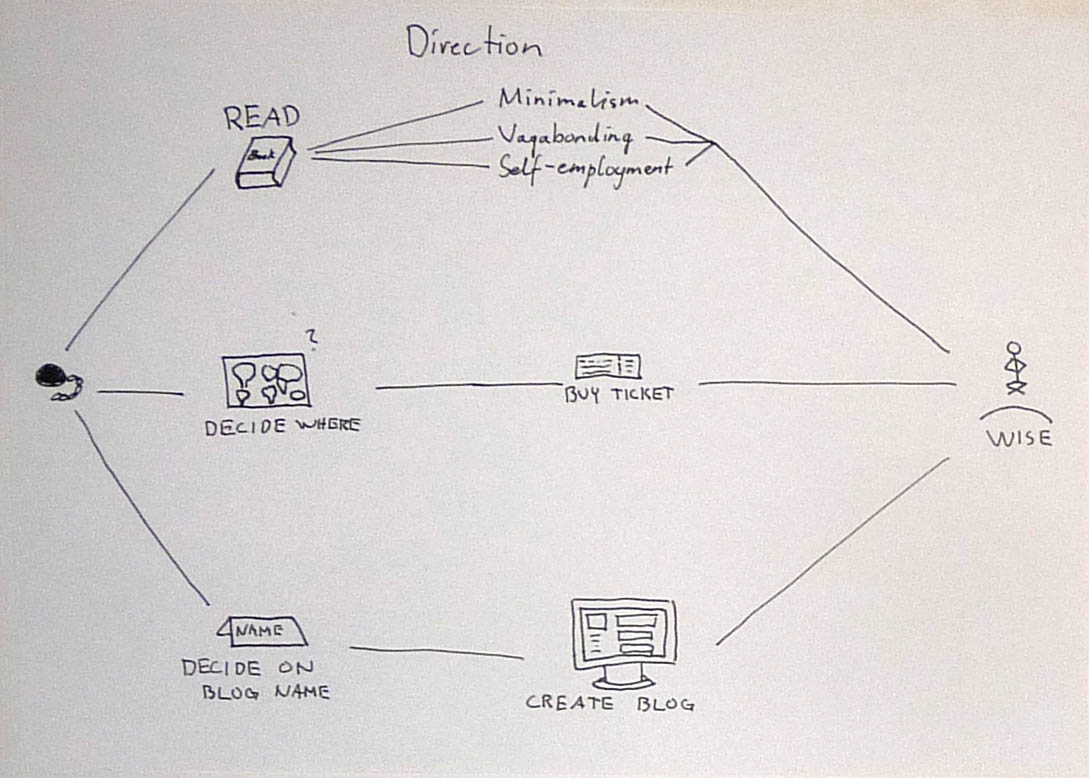 Direction
READ
Book
Minimalism
Vagabonding
Self-employment
?
DECIDE WHERE
BUY TICKET
WISE
NAME
DECIDE ON
BLOG NAME
CREATE BLOG